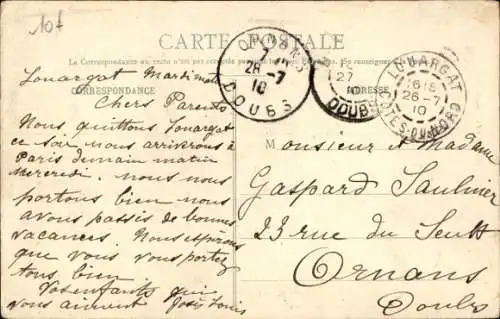 10f
CARTE POSTALE
La Correspondance au recto n'est pas acceptée par tous les pays étrangers
CORRESPONDANCE
ADRESSE
ORNANS
7
28-7
10
DOUBS
27
10
DOUBS
LOUARGAT
26-7
10
CÔTES-DU-NORD
Louargat Mardi matin
Chers Parents
Nous quittons Louargat
ce soir nous arriverons à
Paris demain matin
Mercredi. nous nous
portons bien nous
avons passés de bonnes
vacances. Nous espérons
que vous vous portez
tous bien
Vos enfants qui
vous aiment
Monsieur et Madame
Gaspard Saulinier
23 rue du Seult
Ornans
Doubs